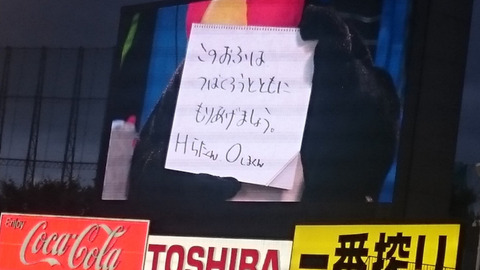 このおふは
つばくろうとともに
もりあげましょう。
Hらたくん Oしまくん
Enjoy
Coca-Cola
TOSHIBA
一番搾り